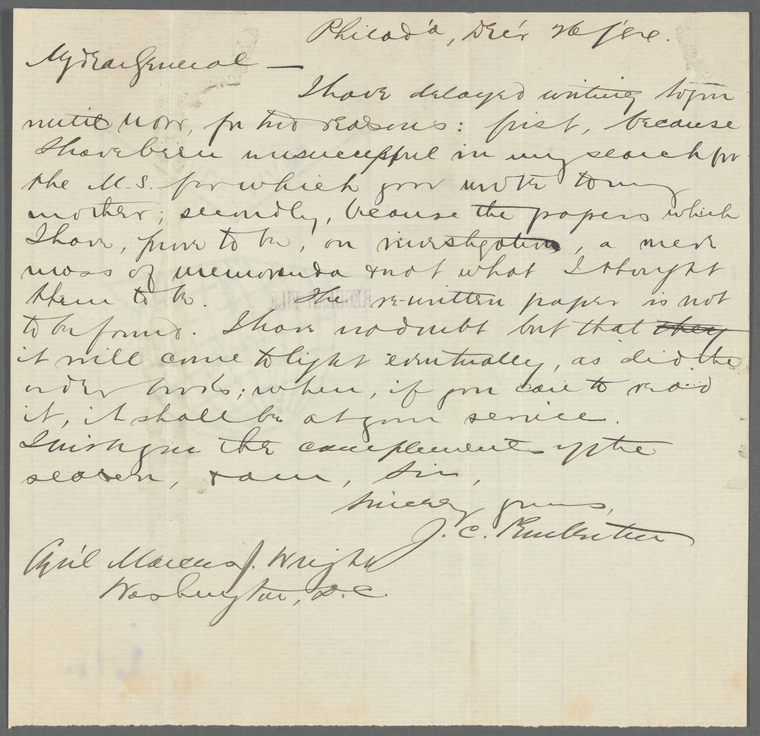 Philad'a, Dec'r 26
My dear General —
I have delayed writing to you
until now, for two reasons: first, because
I have been unsuccessful in my search for
the M.S. for which you wrote to my
mother; secondly, because the papers which
I have, prove to be, on investigation, a mere
mass of memoranda & not what I thought
them to be. The re-written paper is not
to be found. I have no doubt but that they
it will come to light eventually, as did the
order books; when, if you care to read
it, it shall be at your service.
I wish you the complements of the
season, & am, Sir,
Sincerely yours,
J. C.
Marcus J. Wright
Washington, D.C.